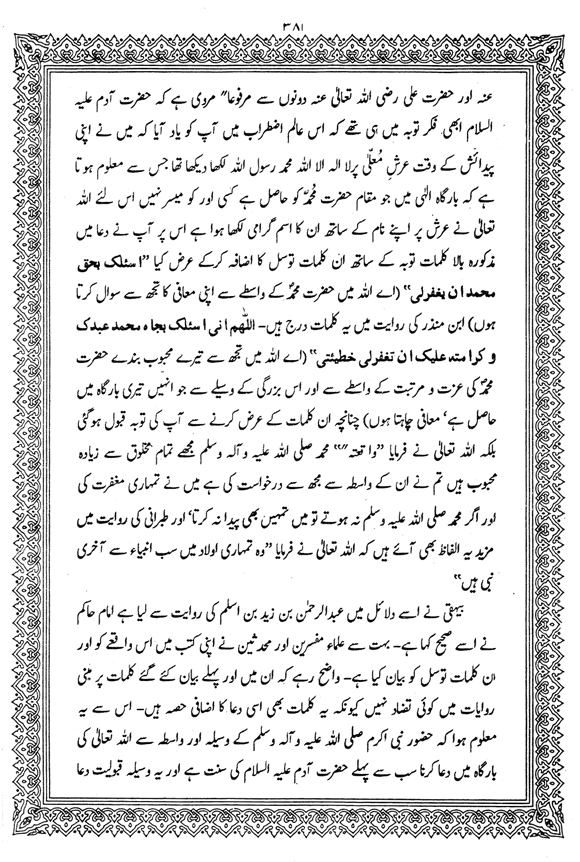 ۳۸۱
عنہ اور حضرت علی رضی اللہ تعالیٰ عنہ دونوں سے مرفوعا" مروی ہے کہ حضرت آدم علیہ
السلام ابھی فکر توبہ میں ہی تھے کہ اس عالم اضطراب میں آپ کو یاد آیا کہ میں نے اپنی
پیدائش کے وقت عرش مُعلّٰی پرلا الہ الا اللہ محمد رسول اللہ لکھا دیکھا تھا جس سے معلوم ہوتا
ہے کہ بارگاہ الٰہی میں جو مقام حضرت محمدؐ کو حاصل ہے کسی اور کو میسر نہیں اس لئے اللہ
تعالیٰ نے عرش پر اپنے نام کے ساتھ ان کا اسم گرامی لکھا ہوا ہے اس پر آپ نے دعا میں
مذکورہ بالا کلمات توبہ کے ساتھ ان کلمات توسل کا اضافہ کرکے عرض کیا ”اسئلک بحق
محمد ان یغفرلی“ (اے اللہ میں حضرت محمدؐ کے واسطے سے اپنی معافی کا تجھ سے سوال کرتا
ہوں) ابن منذر کی روایت میں یہ کلمات درج ہیں- اللٰھم انی اسئلک بجاہ محمد عبدک
و کرامتہ علیک ان تغفرلی خطیئتی“ (اے اللہ میں تجھ سے تیرے محبوب بندے حضرت
محمدؐ کی عزت و مرتبت کے واسطے سے اور اس بزرگی کے وسیلے سے جو انہیں تیری بارگاہ میں
حاصل ہے‘ معافی چاہتا ہوں) چنانچہ ان کلمات کے عرض کرنے سے آپ کی توبہ قبول ہوگئی
بلکہ اللہ تعالیٰ نے فرمایا محمد صلی اللہ علیہ و آلہ وسلم مجھے تمام مخلوق سے زیادہ
محبوب ہیں تم نے ان کے واسطہ سے مجھ سے درخواست کی ہے میں نے تمہاری مغفرت کی
اور اگر محمد صلی اللہ علیہ وسلم نہ ہوتے تو میں تمہیں بھی پیدا نہ کرتا‘ اور طبرانی کی روایت میں
مزید یہ الفاظ بھی آئے ہیں کہ اللہ تعالیٰ نے فرمایا ”وہ تمہاری اولاد میں سب انبیاء سے آخری
نبی ہیں“
بیہقی نے اسے دلائل میں عبدالرحمٰن بن زید بن اسلم کی روایت سے لیا ہے امام حاکم
نے اسے صحیح کہا ہے- بہت سے علماء مفسرین اور محدثین نے اپنی کتب میں اس واقعے کو اور
ان کلمات توسل کو بیان کیا ہے- واضح رہے کہ ان میں اور پہلے بیان کئے گئے کلمات پر مبنی
روایات میں کوئی تضاد نہیں کیونکہ یہ کلمات بھی اسی دعا کا اضافی حصہ ہیں- اس سے یہ
معلوم ہوا کہ حضور نبی اکرم صلی اللہ علیہ و آلہ وسلم کے وسیلہ اور واسطہ سے اللہ تعالیٰ کی
بارگاہ میں دعا کرنا سب سے پہلے حضرت آدم علیہ السلام کی سنت ہے اور یہ وسیلہ قبولیت دعا